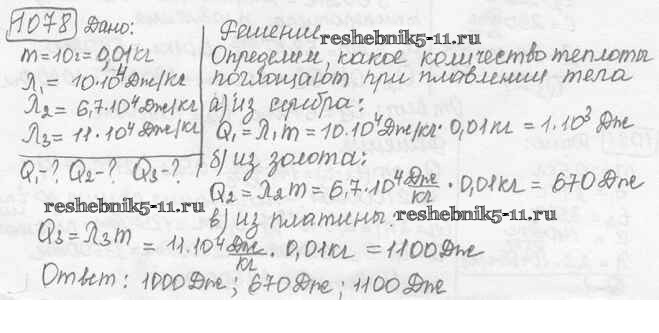 1078 Дано:
m=10г=0,01кг
λ₁=10·10⁴Дж/кг
λ₂=6,7·10⁴Дж/кг
λ₃=11·10⁴Дж/кг
Q₁-? Q₂-? Q₃-?
Решение
reshebnik5-11.ru
Определим, какое количество теплоты
поглощают при плавлении тела
а) из серебра:
Q₁=λ₁m=10·10⁴Дж/кг·0,01кг=1·10³Дж
б) из золота:
Q₂=λ₂m=6,7·10⁴Дж/кг·0,01кг=670Дж
reshebnik5-11.ru
в) из платины
reshebnik5-11.ru
Q₃=λ₃m=11·10⁴Дж/кг·0,01кг=1100Дж
Ответ: 1000Дж; 670Дж; 1100Дж